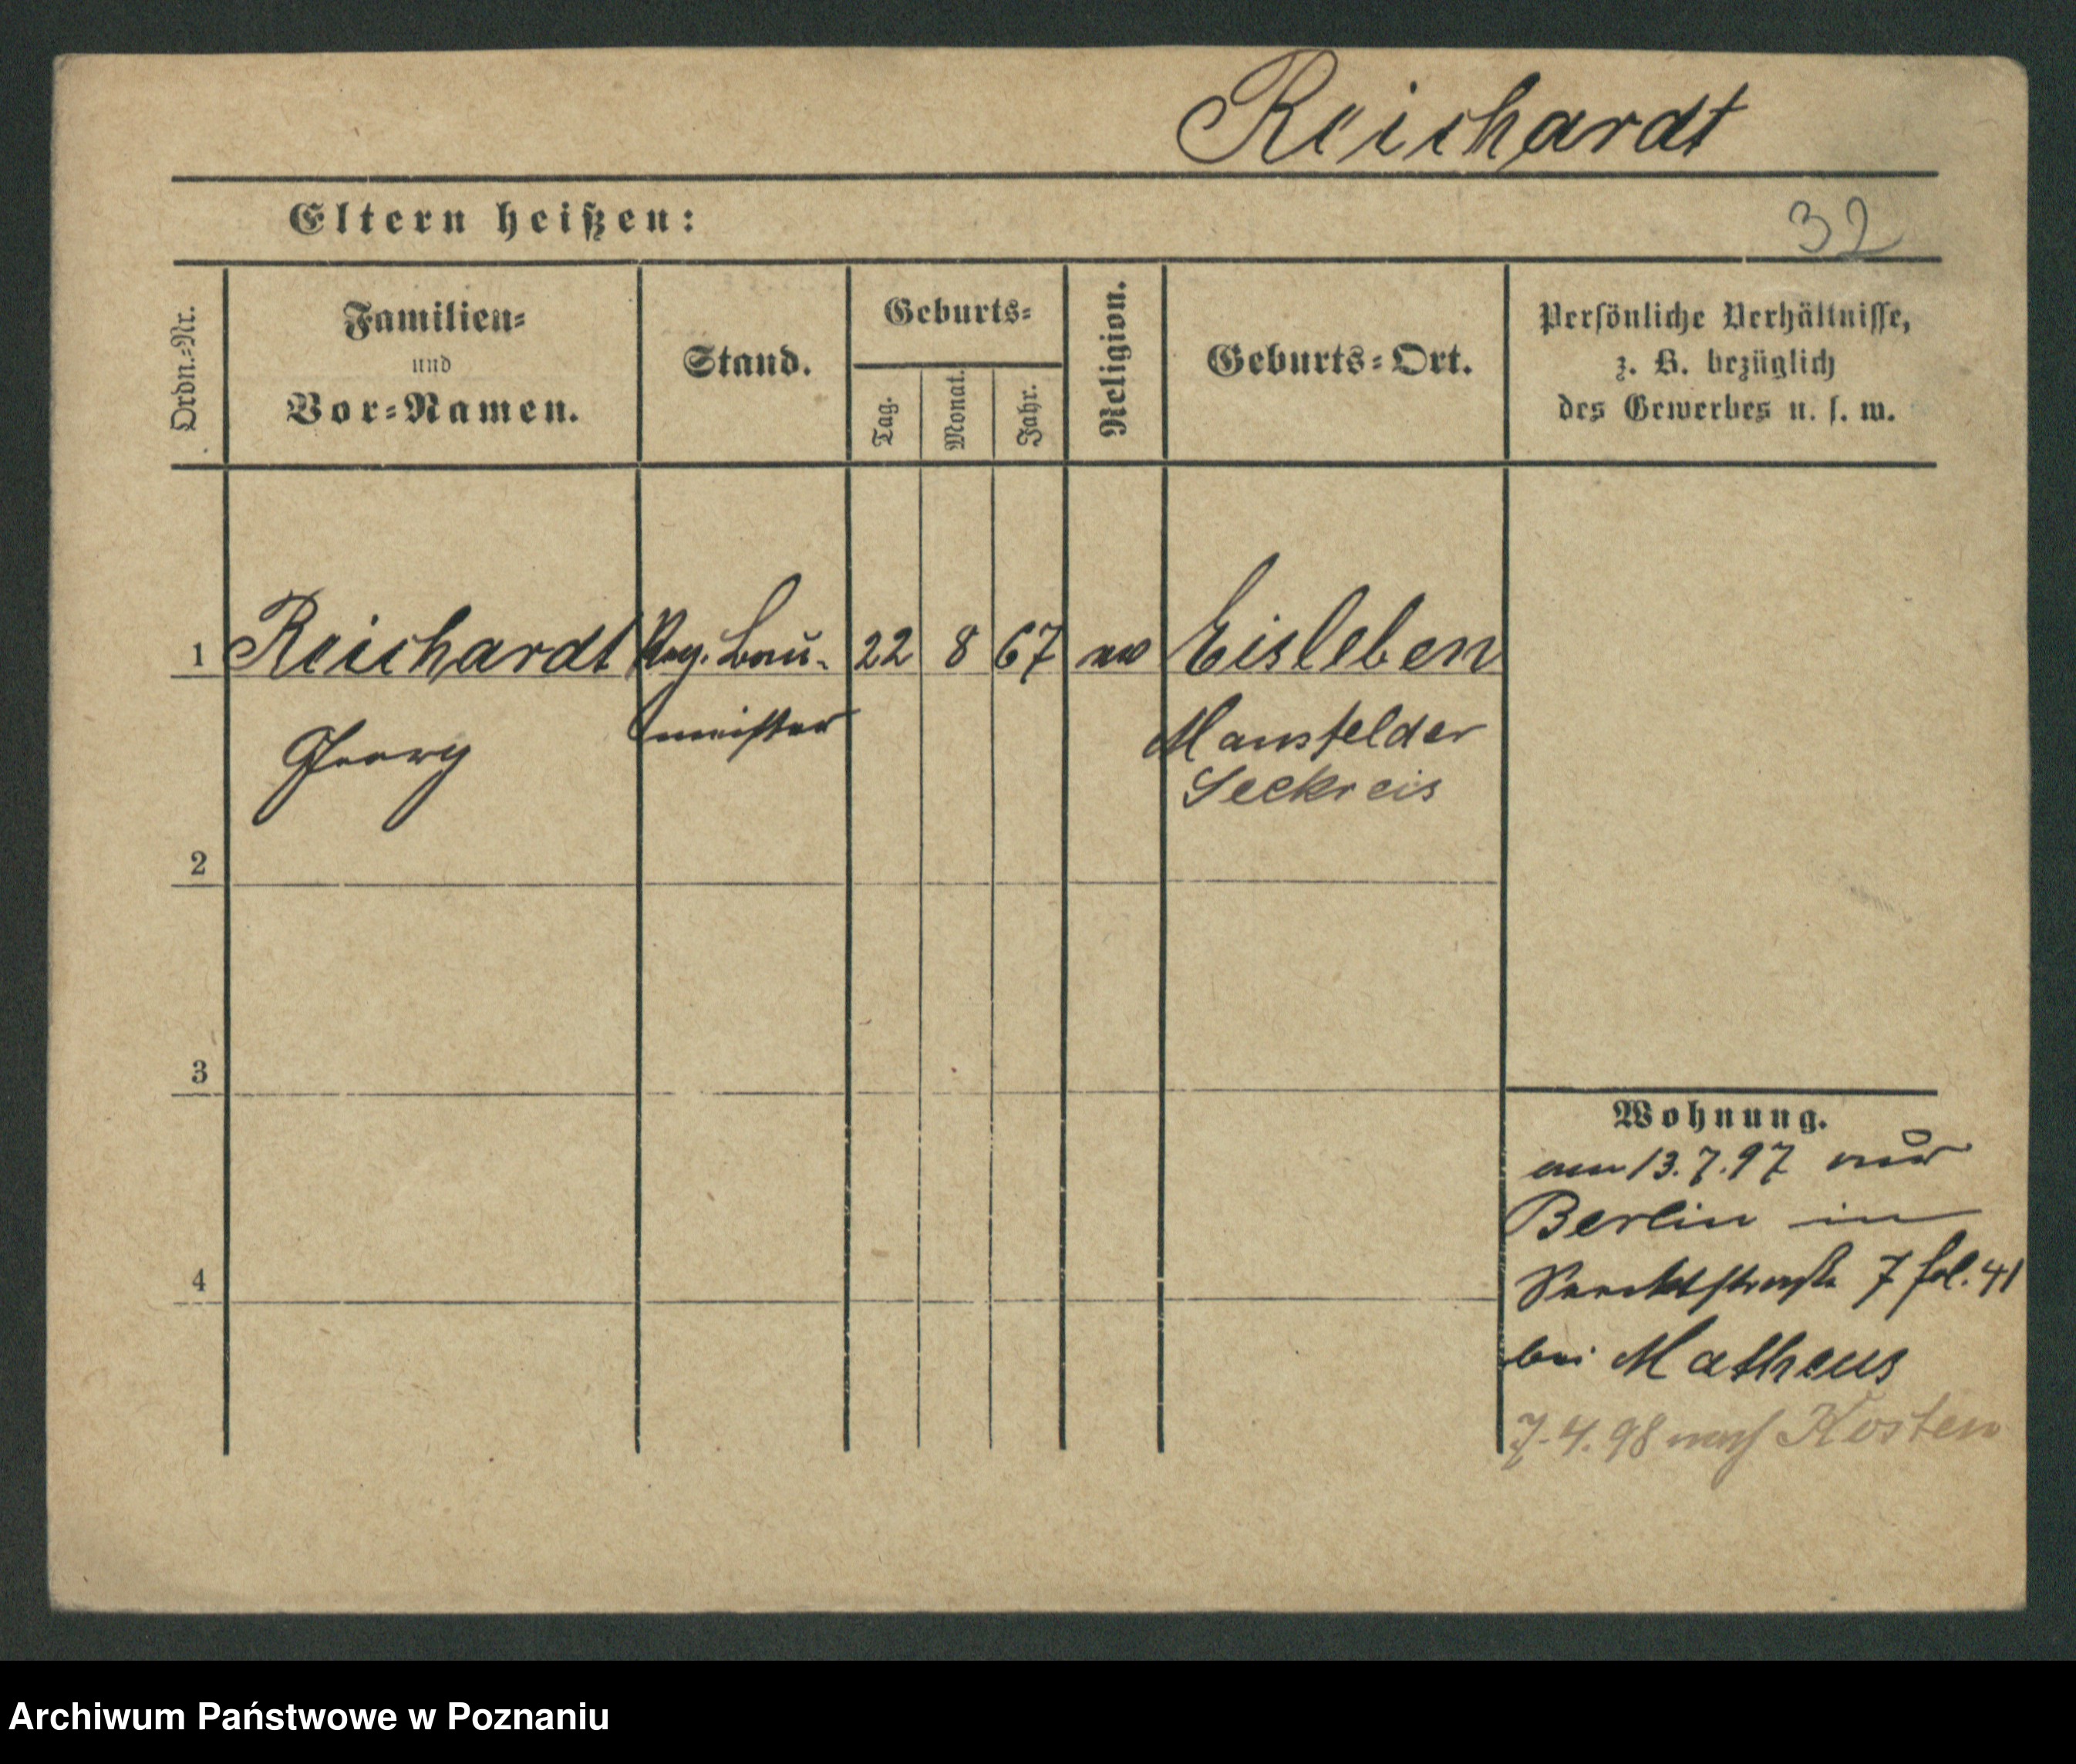 Reichardt
Eltern heißen:
32
Ordn.-Nr.
Familien-
und
Vor-Namen.
Stand.
Geburts-
Tag.
Monat.
Jahr.
Religion.
Geburts-Ort.
Persönliche Verhältnisse,
z. B. bezüglich
des Gewerbes u. s. w.
1 Reichardt Reg. Bau- 22 8 67 ev Eisleben
Georg meister Mansfelder
Seekreis
2
3
4
Wohnung.
am 13.7.97 aus
Berlin in
7 fol. 41
bei Matheus
7.4.98 nach Kosten
Archiwum Państwowe w Poznaniu